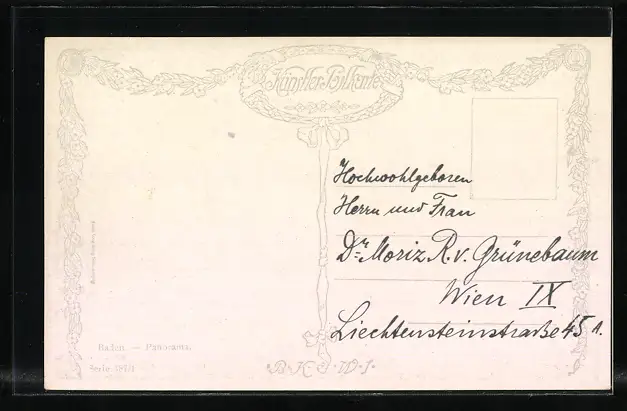 Künstler Postkarte
Hochwohlgeboren
Herrn und Frau
Dr. Moriz R. v. Grünebaum
Wien IX
Liechtensteinstraße 45 A.
Baden. — Panorama.
Serie 197/1
B.K.W.I.